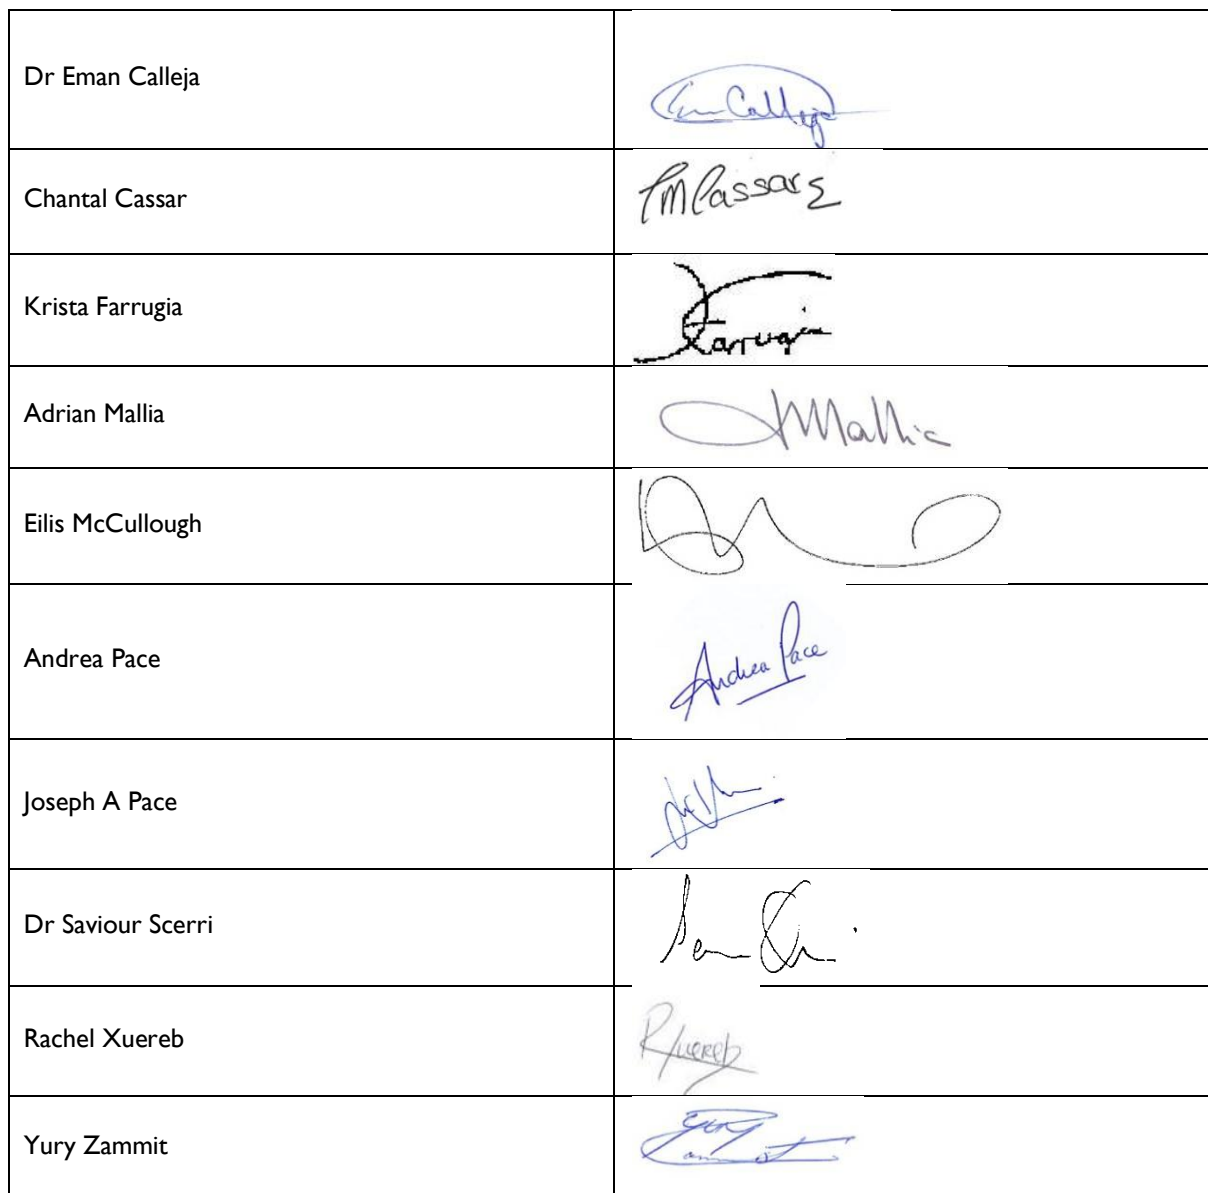 Dr Eman Calleja
Em Calleja
Chantal Cassar
Krista Farrugia
Farrugia
Adrian Mallia
Mallia
Eilis McCullough
Andrea Pace
Andrea Pace
Joseph A Pace
Dr Saviour Scerri
Rachel Xuereb
RXuereb
Yury Zammit
Yury
Zammit